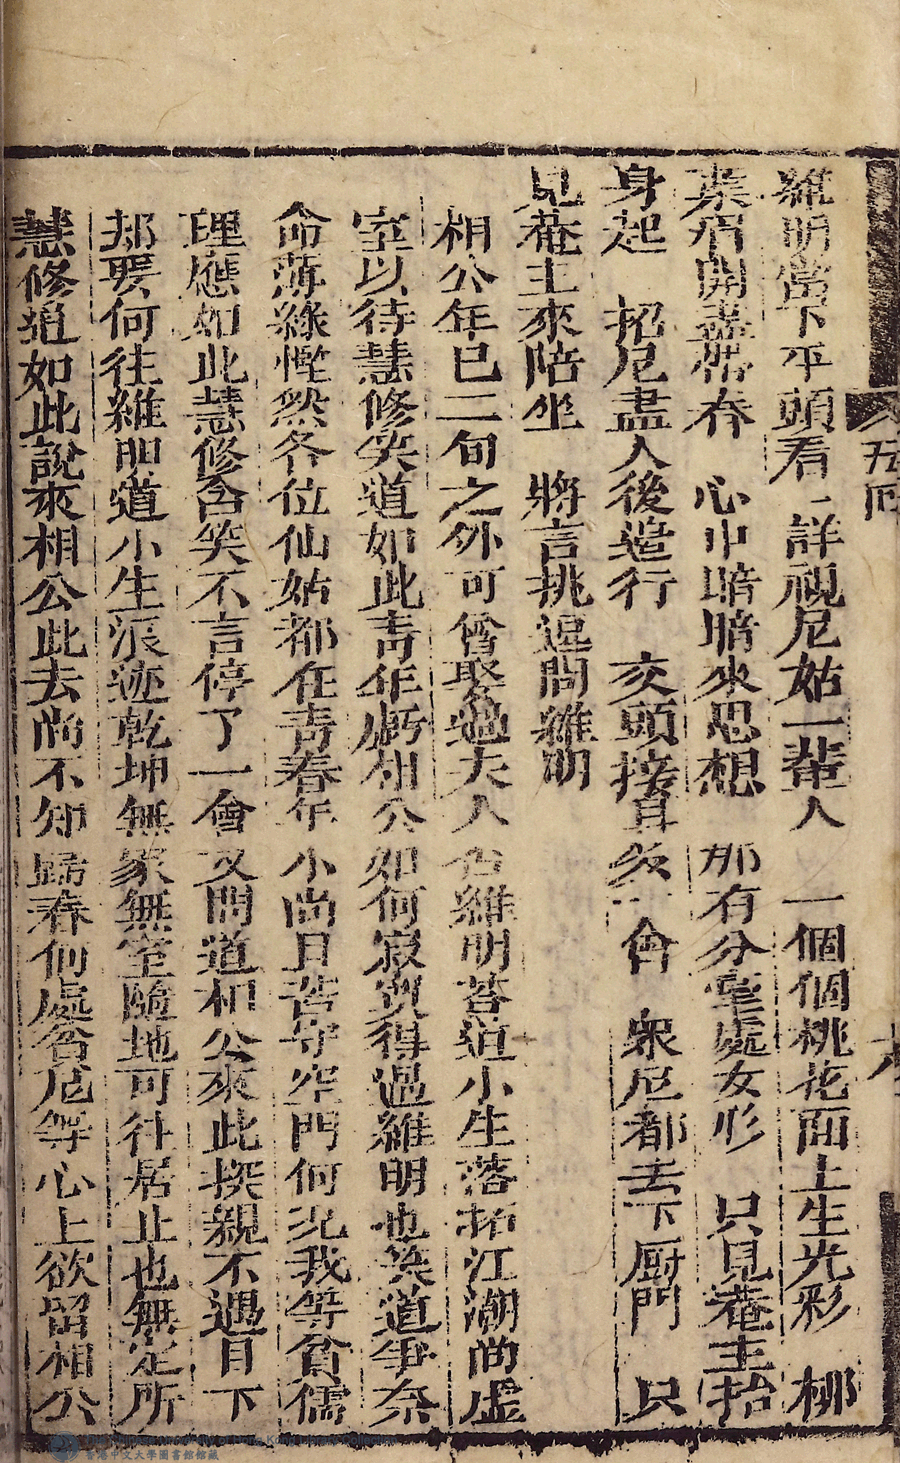 維明當下平頭看 詳視尼姑一輩人 一個個桃花面上生光彩 柳
葉眉開盡帶春 心中暗暗來思想 那有分毫處女形 只見菴主抬
身起 招尼盡入後邊行 交頭接耳多一會 衆尼都去下厨門 只
見菴主來陪坐 將言挑逗問維明
相公年已二旬之外可曾娶過夫人否維明荅道小生落拓江湖尚虚
室以待慧修笑道如此青年虧相公如何寂寞得過維明也笑道爭奈
命薄緣慳然各位仙姑都在青春年小尚且苦守空門何况我等貧儒
理應如此慧修含笑不言停了一會又問道相公來此探親不遇目下
却要何往維明道小生浪迹乾坤無家無室隨地可往居止也無定所
慧修道如此說來相公此去尚不知歸着何處貧尼等心上欲留相公
香港中文大學圖書館館藏